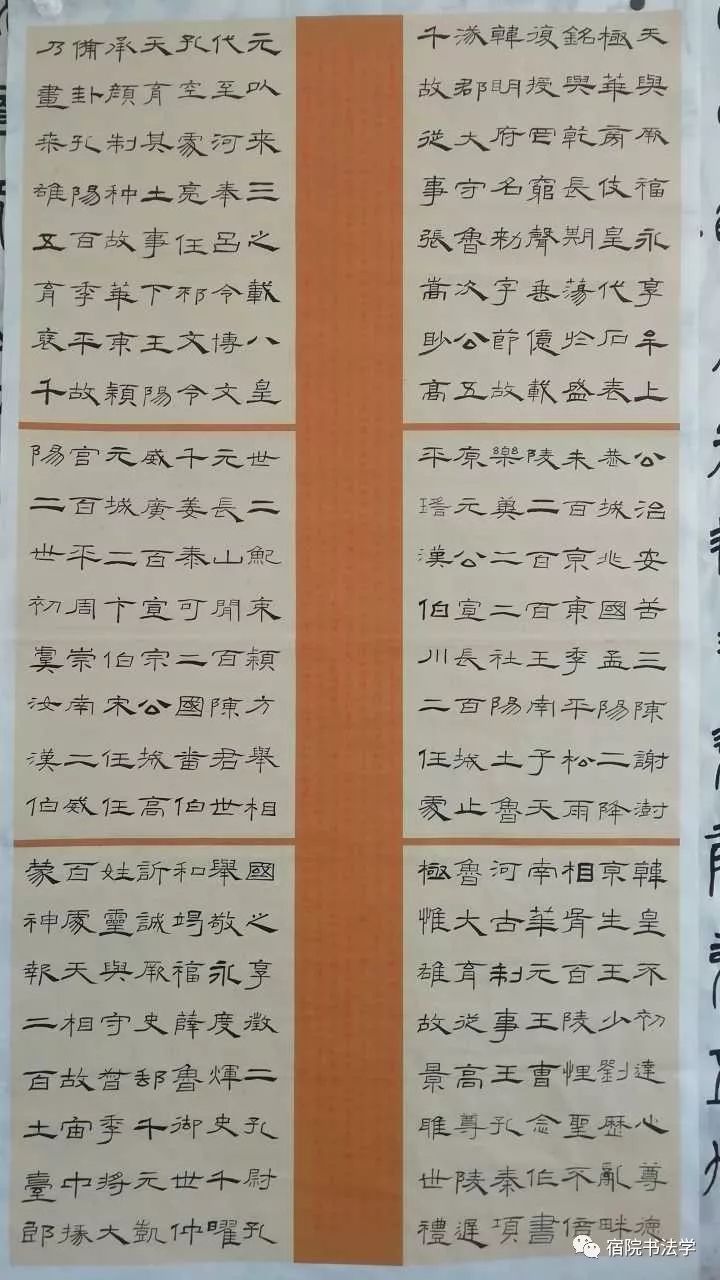 天與厥福永享牟上
極華房伎皇代石表
銘興乾長期蕩於盛
復授罔窮聲垂億載
韓明府名勑字節故
遂郡大守魯次公五
千故從事張嵩眇高
公治安苦三陳謝澍
恭城兆國孟陽二降
朱百京東季平松雨
陵二百百王南子天
樂冀二二社陽土魯
原元公宣長百城止
平瑤漢伯川二任處
韓皇不初達心尊德
京生王少劉歷亂畔
相胥百陵悝聖不倍
南華元王曹念作書
河古制事王孔秦項
魯大育從高尊陵遲
極惟雄故景雎世禮
元以来三之載八皇
代至河奉呂令博文
孔空處亮任邳文令
天育其土事下王陽
承顏制种故華東潁
備卦孔陽百季平故
乃畫来雄五育裒千
世二紀東潁方舉相
元長山聞百陳君世
千姜泰可二國耑伯
威廣百宣宗公城高
元城二卞伯宋任任
官百平周崇南二威
陽二世初虞汝漢伯
國之享徵二孔尉孔
舉敬永度煇史千曜
和竭福薛魯御世仲
訢誠厥史郵千元凱
姓靈與守督季將大
百慮天相故宙中掾
蒙神報二百土臺郎
宿院书法学